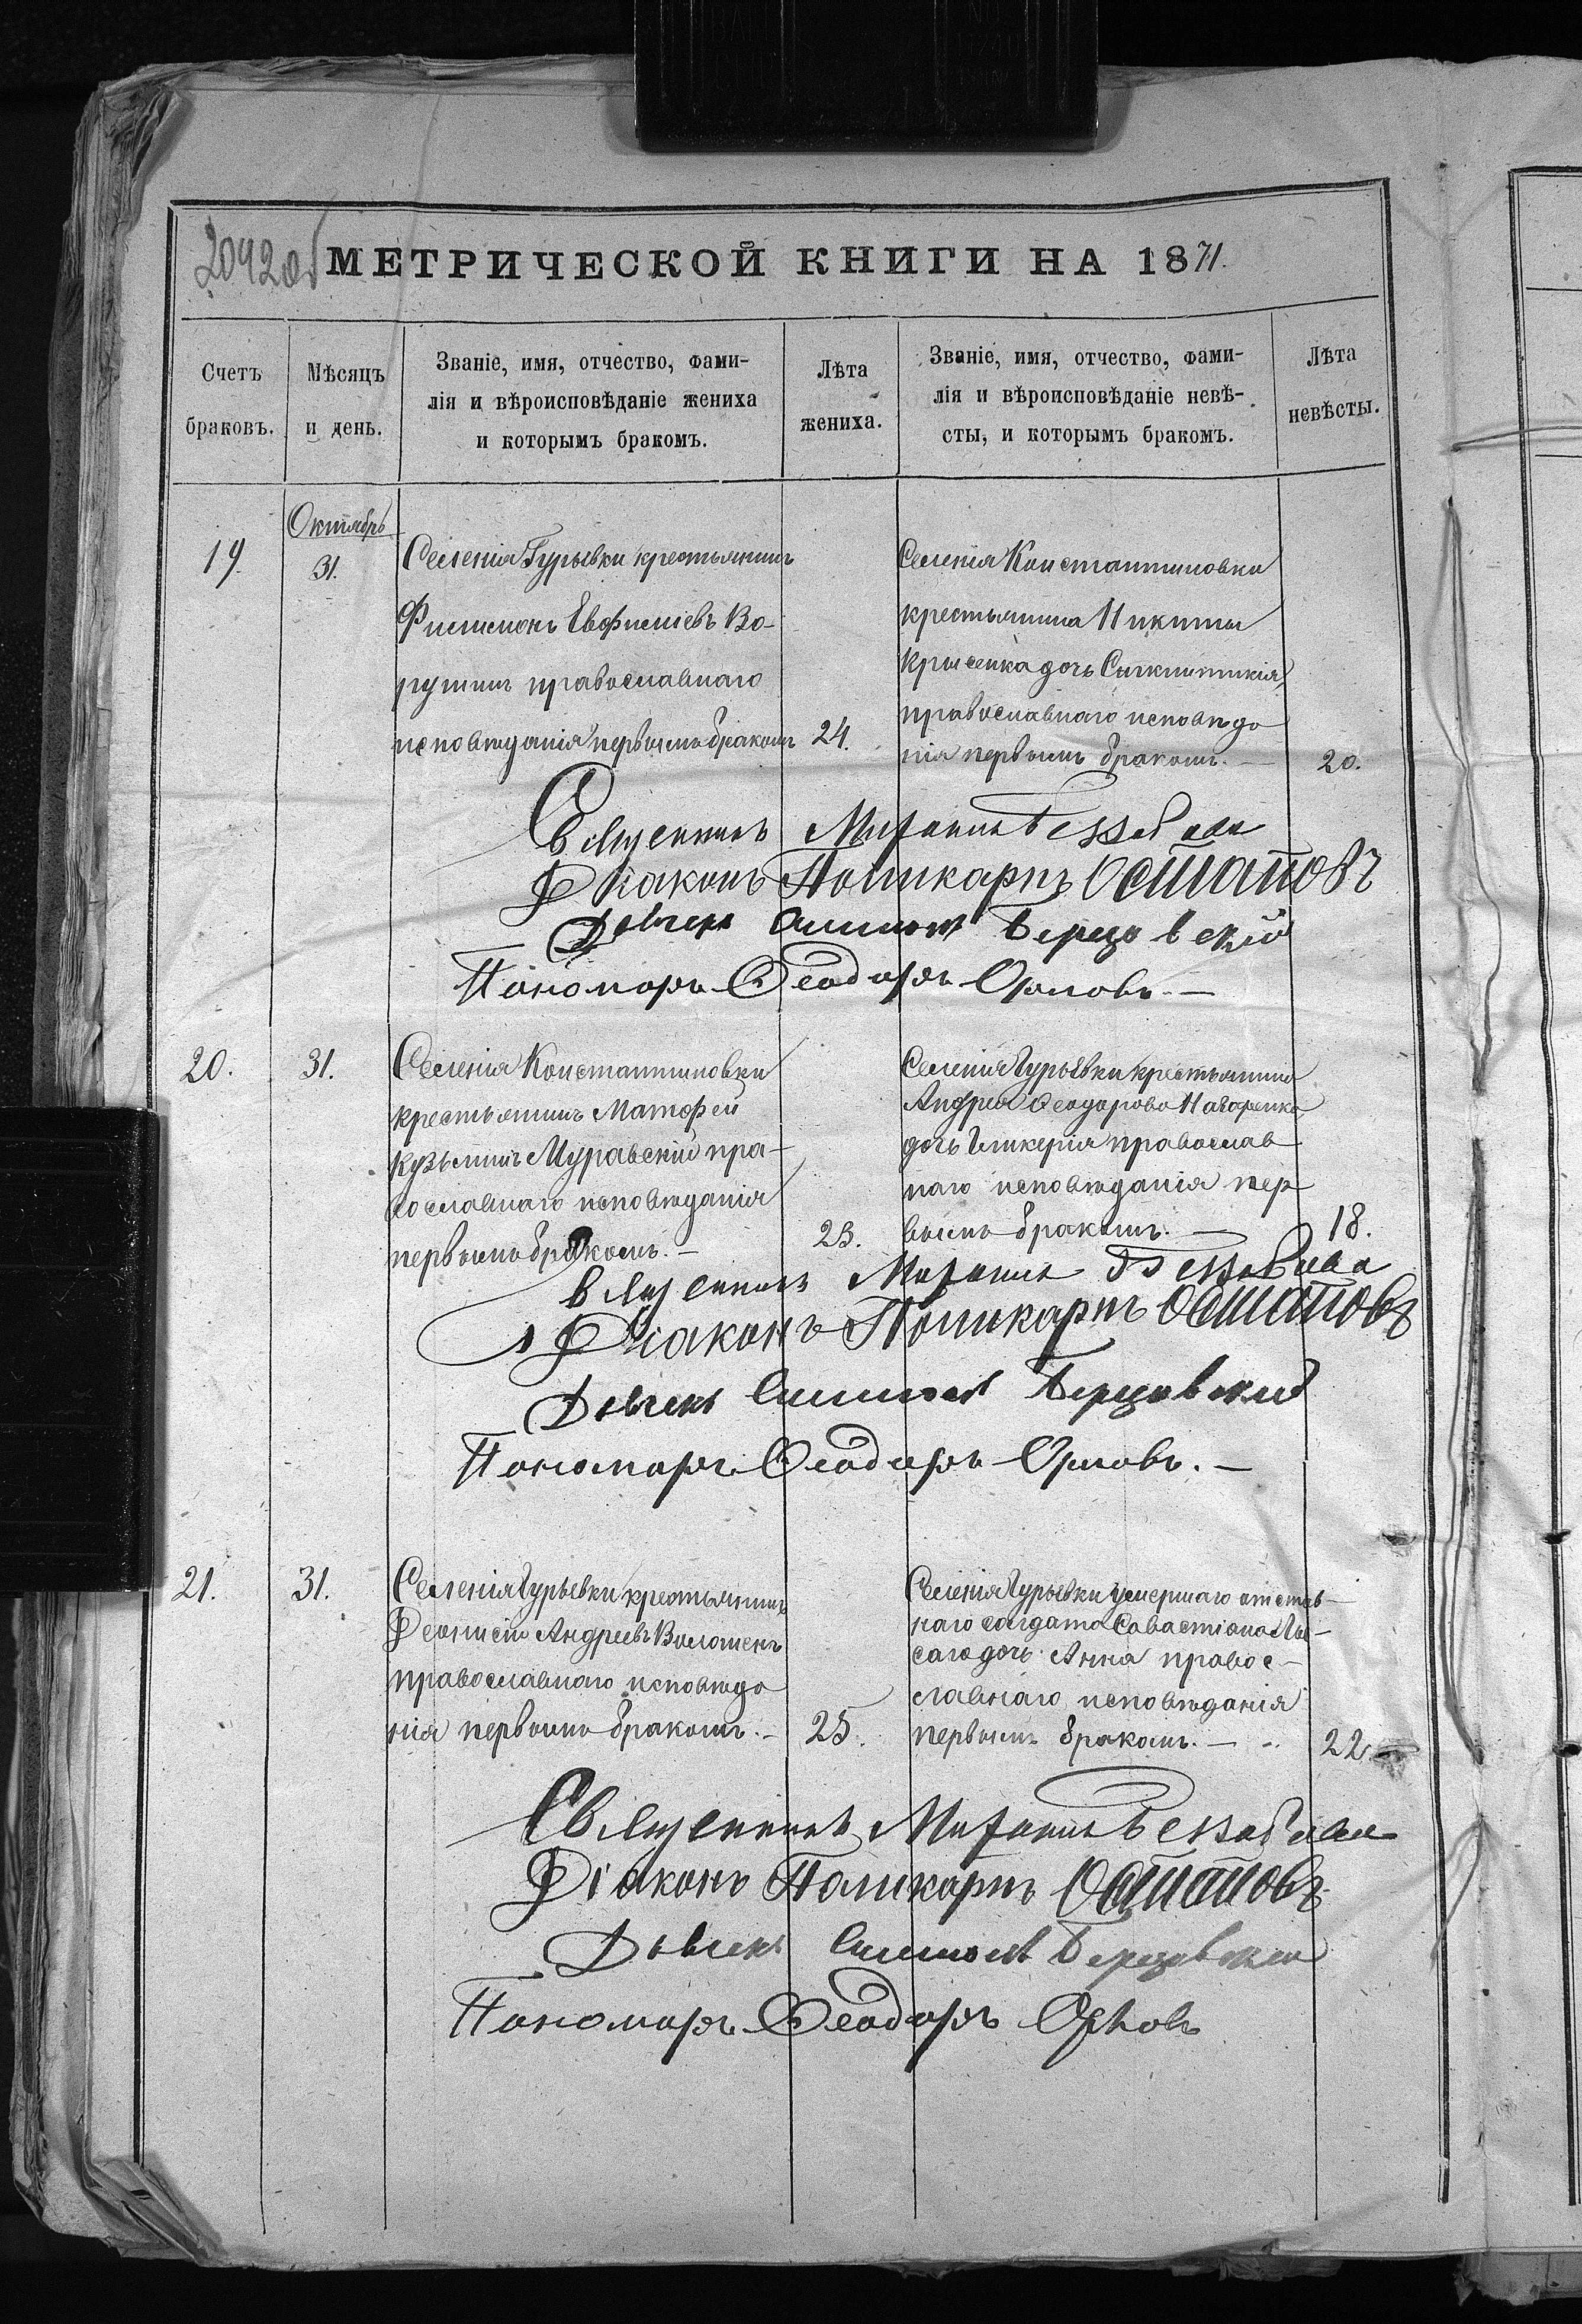 2092об
МЕТРИЧЕСКОЙ КНИГИ НА 1871.
Счетъ
браковъ.
Мѣсяцъ
и день.
Званіе, имя, отчество, фами-
лія и вѣроисповѣданіе жениха
и которымъ бракомъ.
Лѣта
жениха.
Званіе, имя, отчество, фами-
лія и вѣроисповѣданіе невѣ-
сты, и которымъ бракомъ.
Лѣта
невѣсты.
19.
Октябрь
31.
Селенія Гурьевки крестьянинъ
Филимонъ Евфиміевъ Во-
рушил православнаго
исповѣданія первымъ бракомъ
24.
Селенія Константиновки
крестьянина Никиты
Крысенка дочь Сигклитикія,
православнаго исповѣда
нія первымъ бракомъ. —
20.
Священникъ
Діаконъ Поликарпъ Остаповъ
Дьячекъ Симеон Березовский
Пономарь Феодоръ Орловъ —
20.
31.
Селенія Константиновки
крестьянинъ Матфей
Кузьминъ Муравскій пра-
вославнаго исповѣданія
первымъ бракомъ. —
23.
Селенія Гурьевки крестьянина
Андрея Феодорова Назаренка
дочь Гликерія православ
наго исповѣданія пер
вымъ бракомъ. —
18.
Священникъ
Діаконъ Поликарпъ Остаповъ
Дьячекъ Симеон Березовский
Пономарь Феодоръ Орловъ. —
21.
31.
Селенія Гурьевки крестьянинъ
Деонисій Андреевъ Волошенъ
православнаго исповѣда
нія первымъ бракомъ. —
25.
Селенія Гурьевки умершаго отстав-
наго солдата Савастіана Лы-
саго дочь Анна правос-
лавнаго исповѣданія
первымъ бракомъ. —
22
Священникъ
Діаконъ Поликарпъ Остаповъ
Дьячекъ Симеон Березовский
Пономарь Феодоръ Орловъ